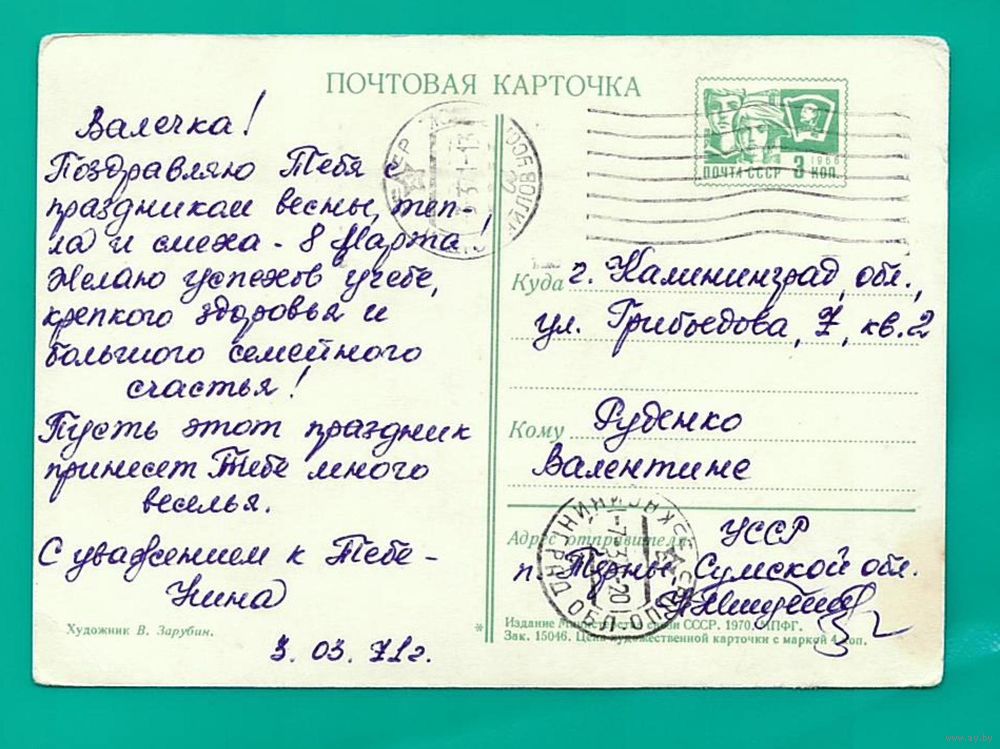 ПОЧТОВАЯ КАРТОЧКА
Валечка!
Поздравляю Тебя с
праздником весны, теп-
ла и смеха - 8 Марта!
Желаю успехов учебе,
крепкого здоровья и
большого семейного
счастья!
Пусть этот праздник
принесет Тебе много
веселья.
С уважением к Тебе -
Нина
3. 03. 71г.
Художник В. Зарубин.
1966
ПОЧТА СССР 3 КОП.
Куда г. Калининград, обл.,
ул. Грибоедова, 7, кв. 2
Кому Руденко
Валентине
Адрес отправителя УССР
п. Терны Сумской обл.
Издание Министерства связи СССР. 1970. МПФГ.
Зак. 15046. Цена художественной карточки с маркой 4 коп.
www.ay.by